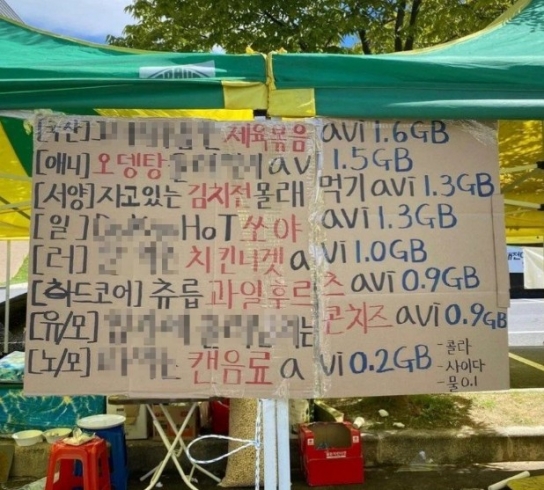 [국산] 제육볶음 avi 1.6GB
[애니] 오뎅탕 avi 1.5GB
[서양] 자고있는 김치전 몰래 먹기 avi 1.3GB
[일] HoT 쏘야 avi 1.3GB
[러] 치킨너겟 avi 1.0GB
[하드코어] 츄릅 과일후르츠 avi 0.9GB
[유/모] 는 콘치즈 avi 0.9GB
[노/모] 캔음료 avi 0.2GB
-콜라
-사이다
-물 0.1